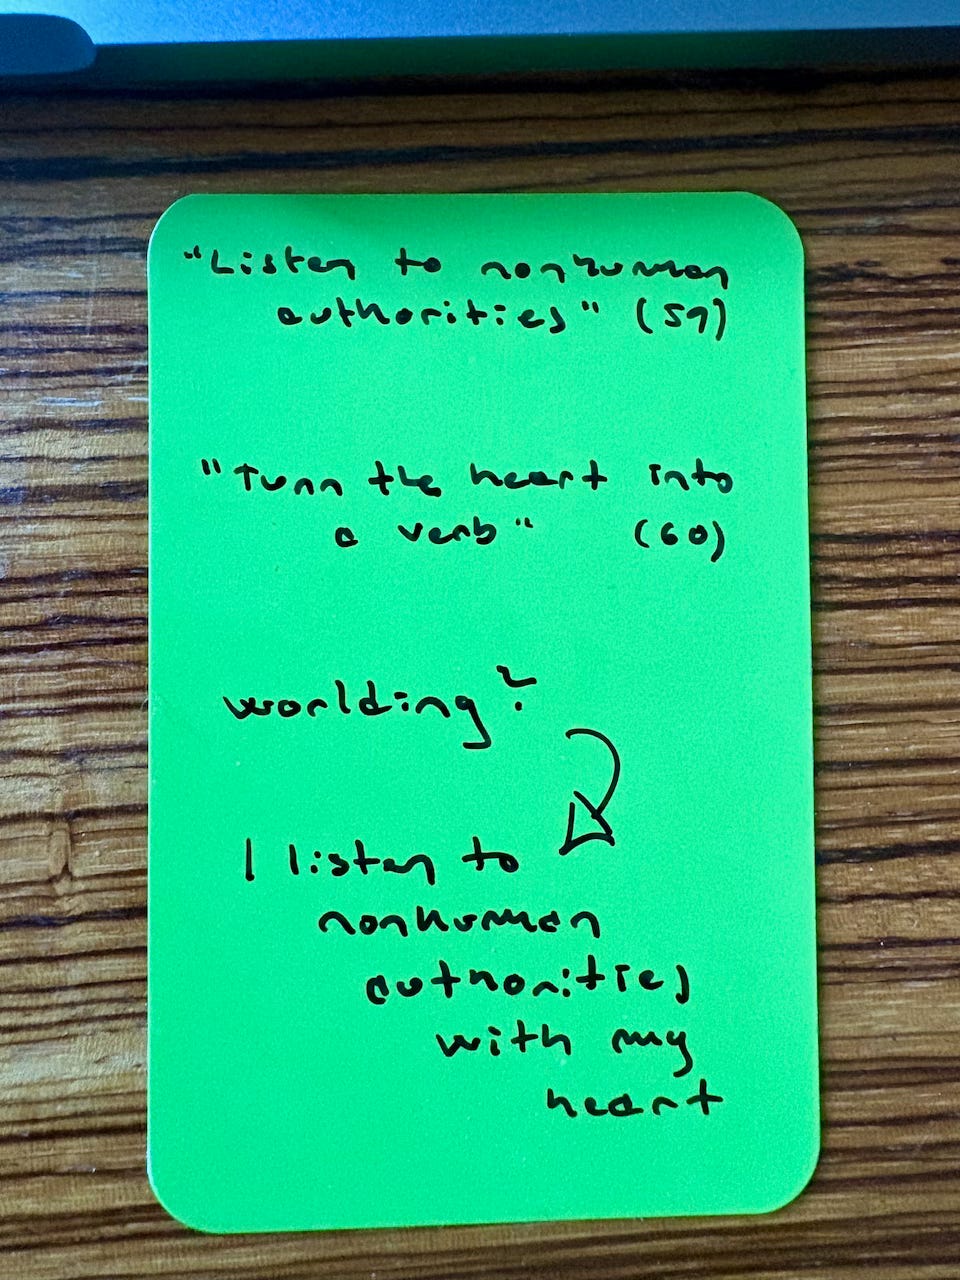 "Listen to nonhuman
authorities" (59)
"Turn the heart into
a verb" (60)
worlding?
I listen to
nonhuman
authorities
with my
heart